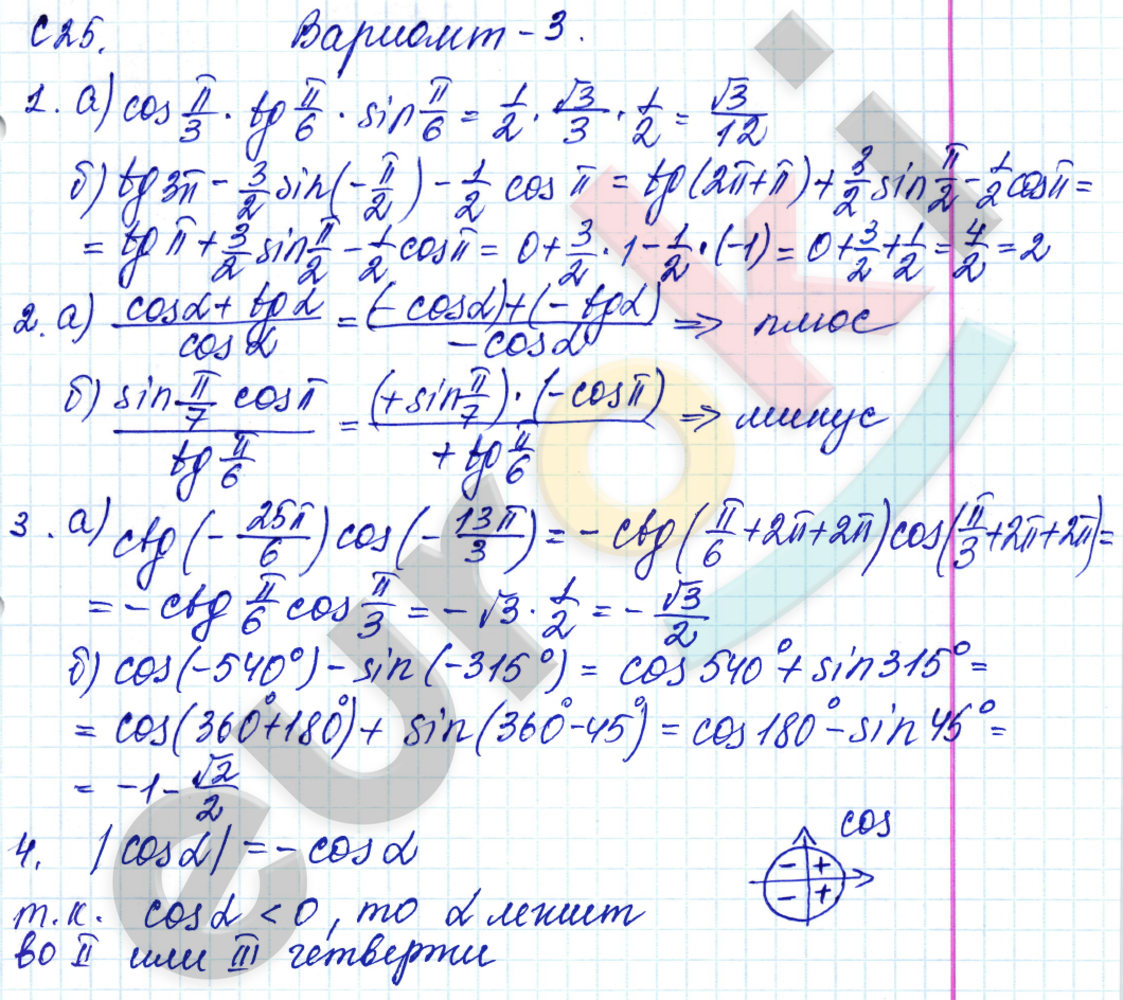 С25. Вариант - 3.
1. а) cos π/3 · tg π/6 · sin π/6 = 1/2 · √3/3 · 1/2 = √3/12
б) tg 3π - 3/2 sin(-π/2) - 1/2 cos π = tg(2π+π) + 3/2 sin π/2 - 1/2 cos π =
= tg π + 3/2 sin π/2 - 1/2 cos π = 0 + 3/2 · 1 - 1/2 · (-1) = 0 + 3/2 + 1/2 = 4/2 = 2
2. а) (cos α + tg α)/(cos α) = ((- cos α) + (- tg α))/(- cos α) => плюс
б) (sin π/7 cos π)/(tg π/6) = ((+ sin π/7) · (- cos π))/(+ tg π/6) => минус
3. а) ctg(- 25π/6) cos(- 13π/3) = - ctg(π/6 + 2π + 2π) cos(π/3 + 2π + 2π) =
= - ctg π/6 cos π/3 = - √3 · 1/2 = - √3/2
б) cos(-540°) - sin(-315°) = cos 540° + sin 315° =
= cos(360° + 180°) + sin(360° - 45°) = cos 180° - sin 45° =
= -1 - √2/2
4. |cos α| = - cos α
cos
- +
- +
т.к. cos α < 0, то α лежит
во II или III четверти
euroki